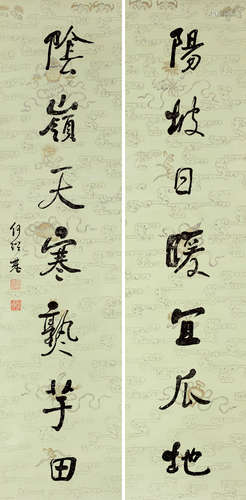 陽坡日暖宜瓜地
陰嶺天寒熟芋田
何紹基